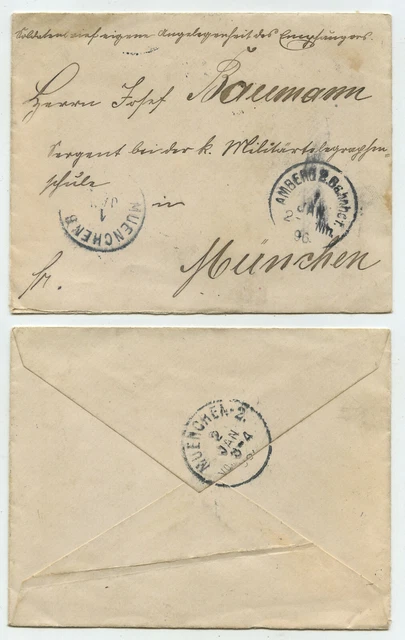 Soldatenbrief eigene Angelegenheit des Empfängers.
Herrn Josef Baumann
Sergent bei der k. Militärtelegraphen-
schule
in
München
fr.
MUENCHEN B
1
JAN
AMBERG 2. (Bahnhof.)
JAN
2-
Nm.
96
MUENCHEN-2.
2
JAN
3-4